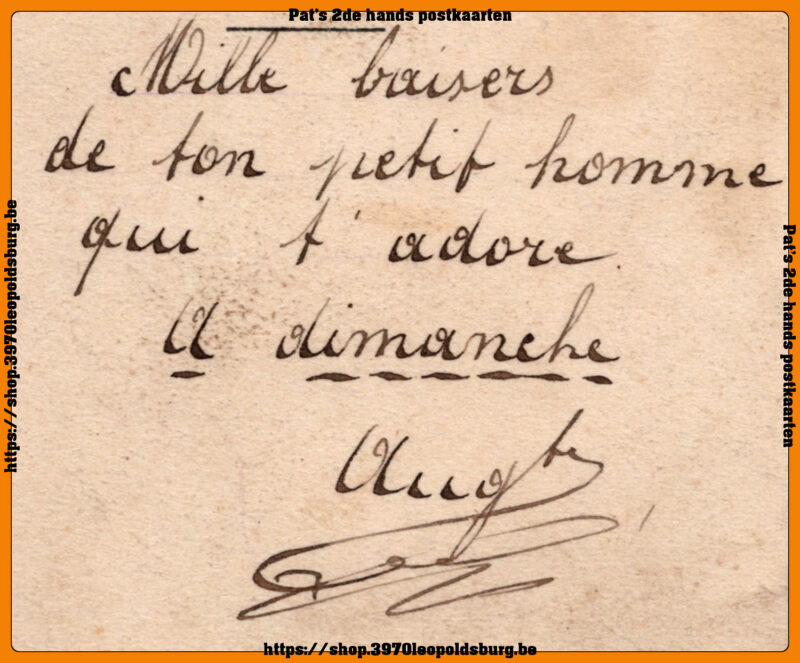 Pat's 2de hands postkaarten
Mille baisers
de ton petit homme
qui t'adore
A dimanche
Augte
https://shop.3970leopoldsburg.be
Pat's 2de hands postkaarten
https://shop.3970leopoldsburg.be